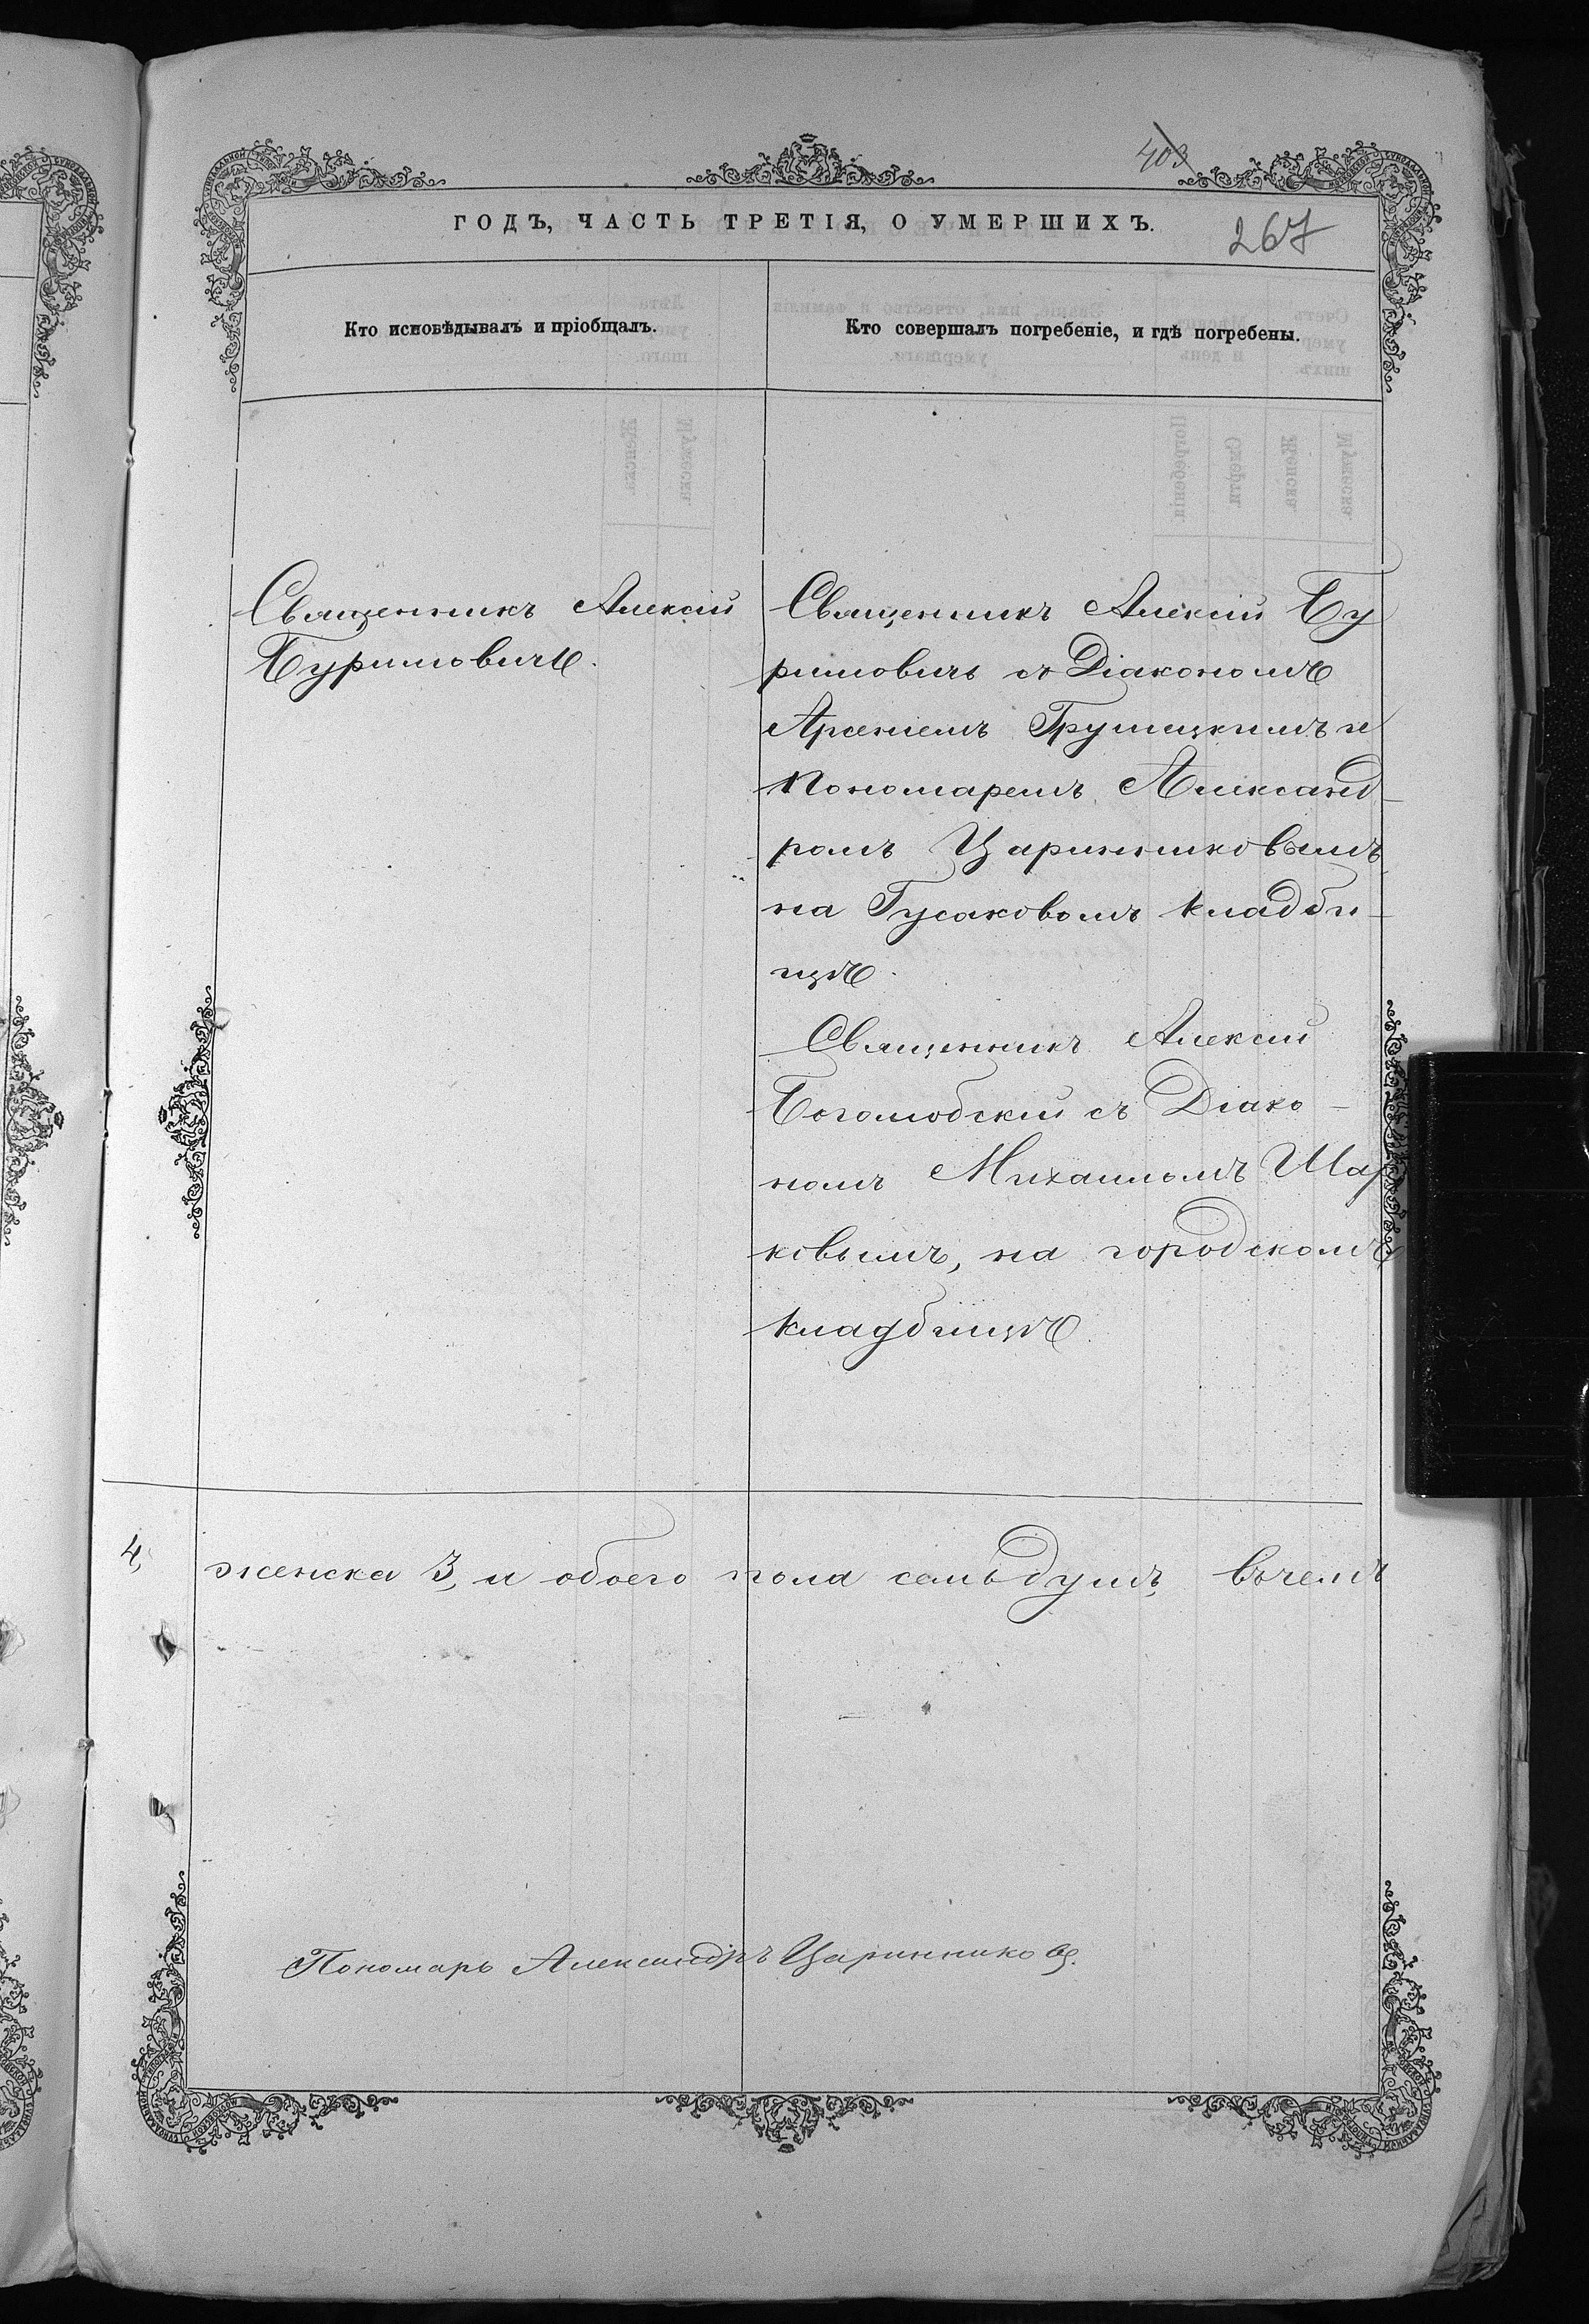 403
ГОДЪ, ЧАСТЬ ТРЕТІЯ, О УМЕРШИХЪ.
267
Кто исповѣдывалъ и пріобщалъ.
Кто совершалъ погребеніе, и гдѣ погребены.
Священникъ Алексій
Буримовичъ.
Священникъ Алексій Бу
римовичъ съ Діакономъ
Арсеніемъ Грушецкимъ и
Пономаремъ Александ-
ромъ Царинниковымъ
на Гусаковомъ кладби-
щѣ.
Священникъ Алексій
Боголюбскій съ Діако-
номъ Михаиломъ Шар
ковымъ, на городскомъ
кладбищѣ.
4, женска 3, и обоего пола семь душъ, въ чемъ
Пономарь Александръ Царинниковъ.